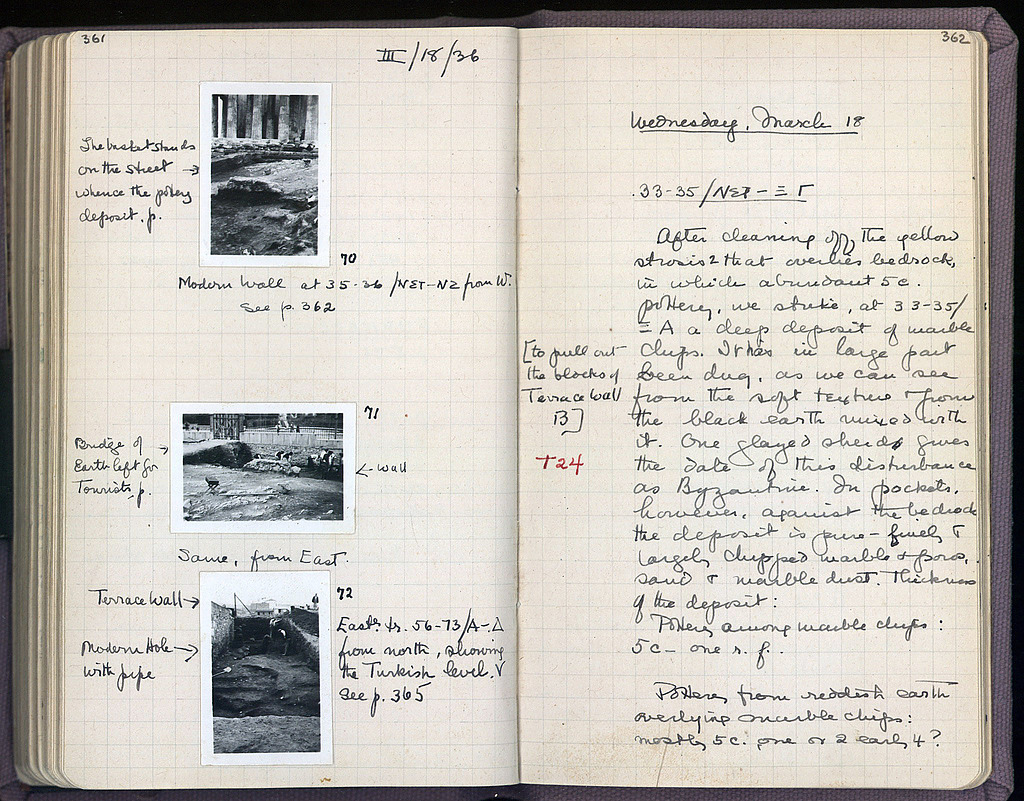 361
III/18/36
The basket stands
on the street →
whence the pottery
deposit. p.
70
Modern Wall at 35-36 /ΝΣΤ-ΝΖ from W.
See p. 362
71
Bridge of →
Earth left for
Tourists. p.
← Wall
Same, from East.
72
Terrace Wall →
Modern Hole →
with pipe
East tr. 56-73/Α-Δ
from north, showing
the Turkish level. V
See p. 365
362
Wednesday, March 18
33-35/ΝΣΤ-ΞΓ
After cleaning off the yellow
strosis 2 that overlies bedrock,
in which abundant 5c.
pottery, we strike, at 33-35/
ΞΑ a deep deposit of marble
chips. It has in large part
been dug, as we can see
from the soft texture & from
the black earth mixed with
it. One glazed sherd gives
the date of this disturbance
as Byzantine. In pockets,
however, against the bedrock
the deposit is pure - finely &
largely chipped marble & poros,
sand & marble dust. Thickness
of the deposit:
Pottery among marble chips:
5c - one r. f..
Pottery from reddish earth
overlying marble chips:
mostly 5c. one or 2 early 4?
[to pull out
the blocks of
Terrace Wall
B]
T24